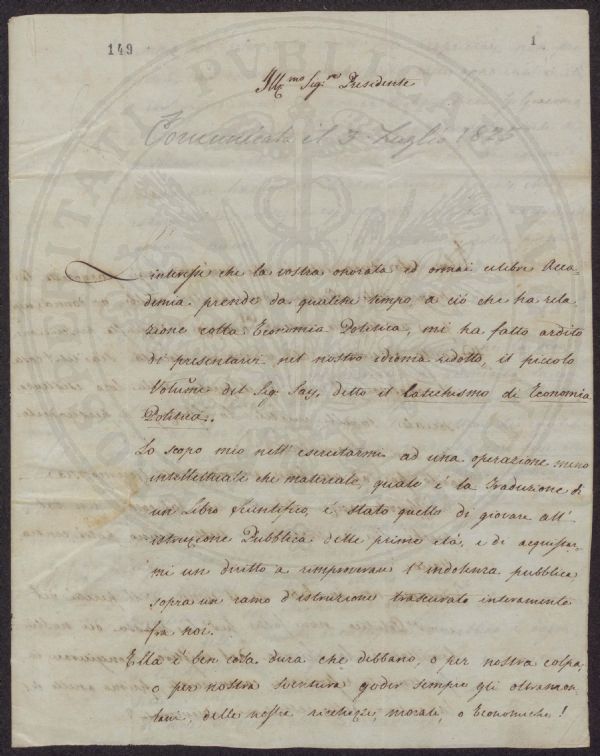 149
1
Ill.mo Sig.re Presidente
Comunicata il 3 Luglio 1825
L'interesse che la vostra onorata ed ormai celebre Acca=
demia prende da qualche tempo a ciò che ha rela
zione colla Economia Politica, mi ha fatto ardito
di presentarvi nel nostro idioma ridotto, il piccolo
Volume del Sig. Say, detto il Catechismo di Economia
Politica.
Lo scopo mio nell'esercitarmi ad una operazione meno
intellettuale che materiale, quale è la Traduzione di
un Libro scientifico, è stato quello di giovare all'
istruzione Pubblica delle prime età, e di acquistar=
mi un diritto a rimproverare l'indolenza pubblica
sopra un ramo d'istruzione trascurato interamente
fra noi.
Ella è ben cosa dura che debbano, o per nostra colpa,
o per nostra sventura goder sempre gli oltramon
tani, delle nostre ricchezze, morali, o Economiche!